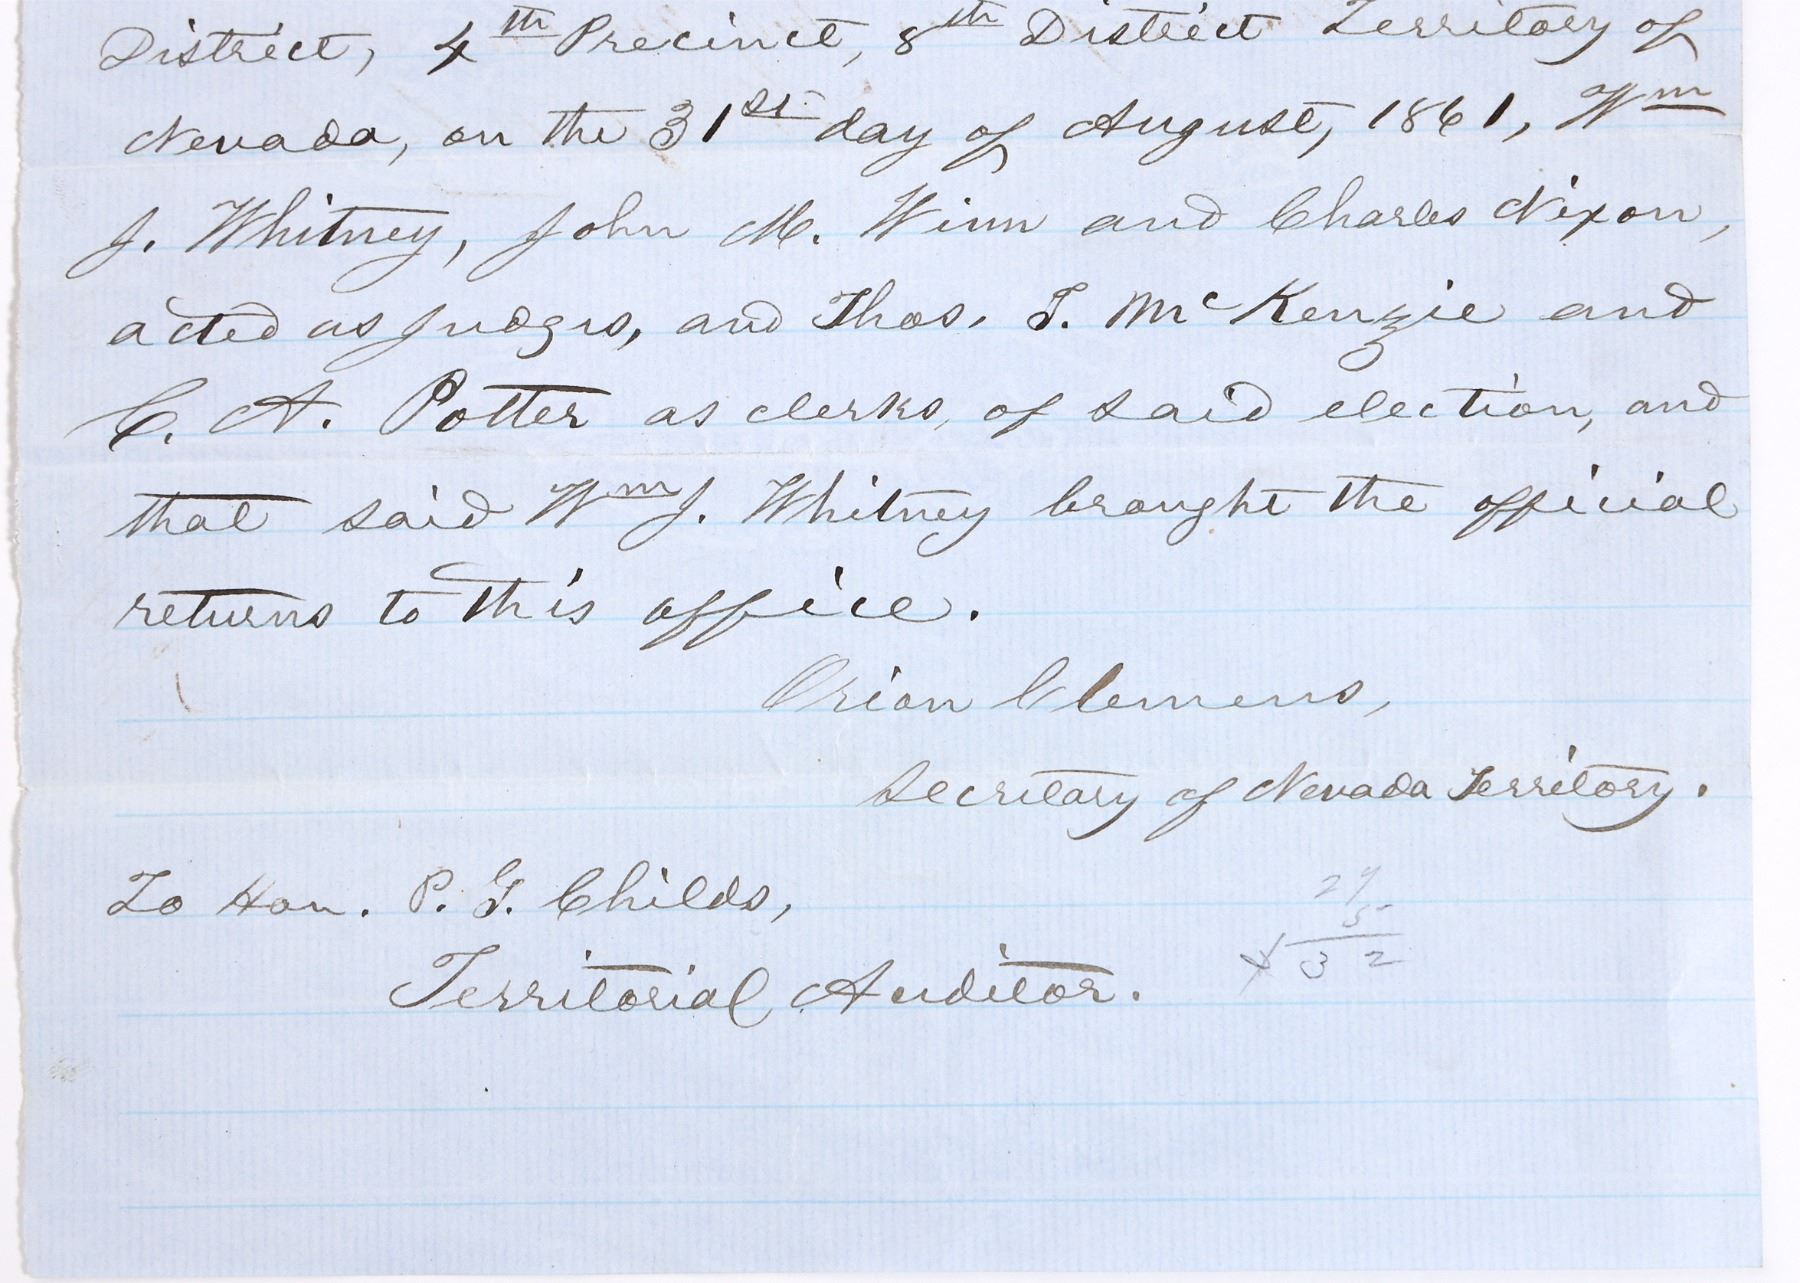 District, 4th Precinct, 8th District Territory of
Nevada, on the 31st day of August, 1861, Wm
J. Whitney, John M. Winn and Charles Nixon,
acted as judges, and Thos. T. McKenzie and
C. A. Potter as clerks, of said election, and
that said Wm J. Whitney brought the official
returns to this office.
Orion Clemens,
Secretary of Nevada Territory.
To Hon. P. G. Childs,
27
5
32
Territorial Auditor.